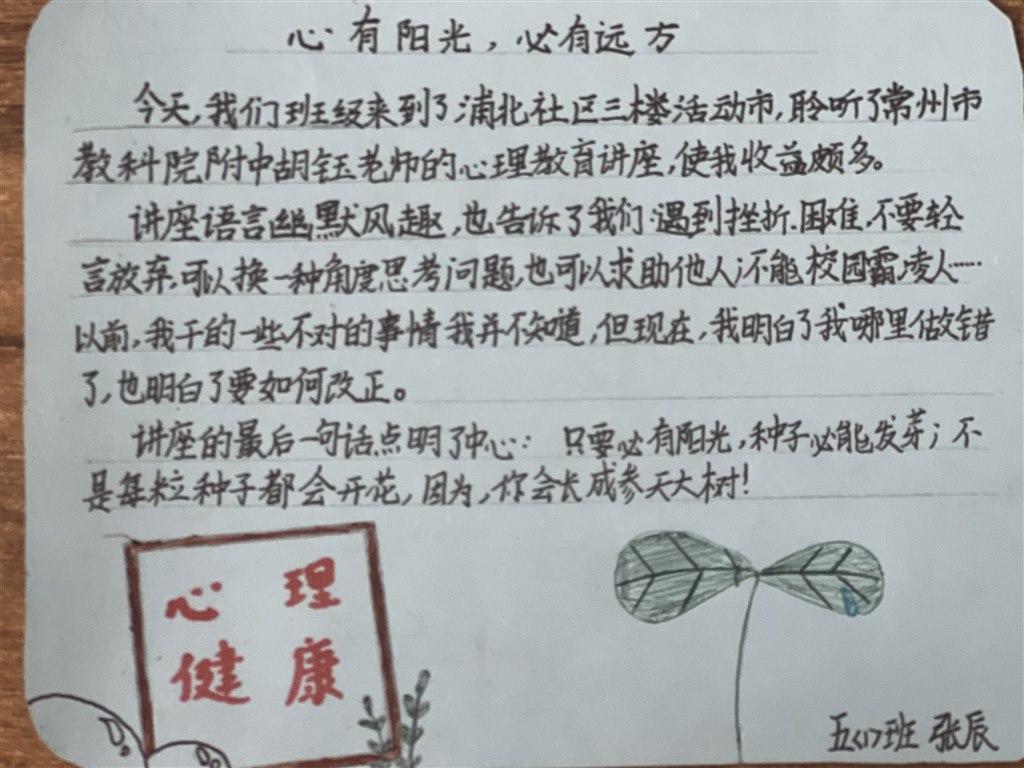 心有阳光，必有远方
今天，我们班级来到了浦北社区三楼活动市，聆听了常州市
教科院附中胡钰老师的心理教育讲座，使我收益颇多。
讲座语言幽默风趣，也告诉了我们：遇到挫折、困难，不要轻
言放弃，可以换一种角度思考问题，也可以求助他人；不能校园霸凌人……
以前，我干的一些不对的事情我并不知道，但现在，我明白了我哪里做错
了，也明白了要如何改正。
讲座的最后一句话点明了中心：只要必有阳光，种子必能发芽；不
是每粒种子都会开花，因为，你会长成参天大树！
心理
健康
五〈1〉班 张辰